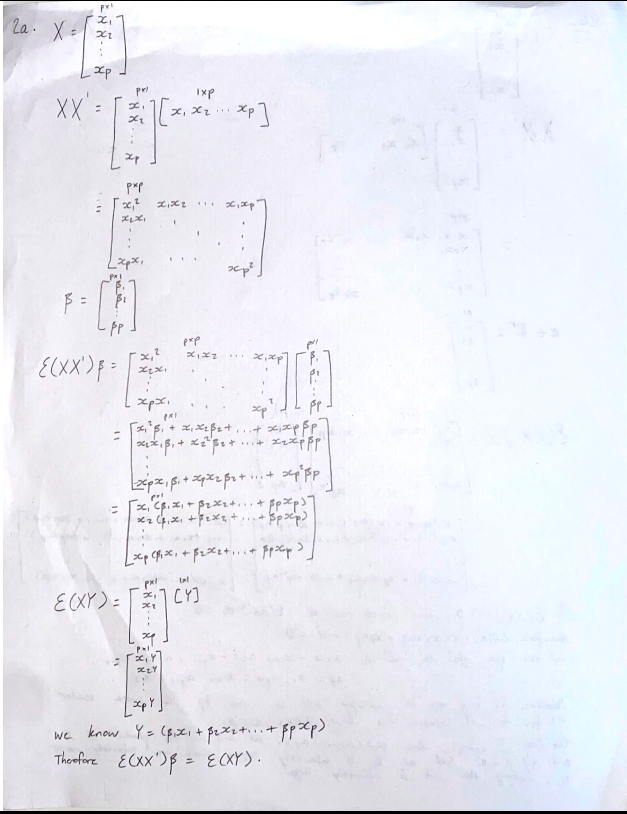 2a. X = [x₁ x₂ ⋮ xp] p×1
XX' = [x₁ x₂ ⋮ xp] p×1 [x₁ x₂ ... xp] 1×p
= [x₁² x₁x₂ ... x₁xp p×p
x₂x₁ . ⋮
⋮
xpx₁ ... xp²]
β = [β₁ β₂ ⋮ βp] p×1
Ɛ(XX')β = [x₁² x₁x₂ ... x₁xp p×p] [β₁ p×1
x₂x₁ . ⋮ β₂
⋮ ⋮
xpx₁ ... xp²] βp]
= [x₁²β₁ + x₁x₂β₂ + ... + x₁xpβp p×1
x₂x₁β₁ + x₂²β₂ + ... + x₂xpβp
⋮
xpx₁β₁ + xpx₂β₂ + ... + xp²βp]
= [x₁(β₁x₁ + β₂x₂ + ... + βpxp) p×1
x₂(β₁x₁ + β₂x₂ + ... + βpxp)
⋮
xp(β₁x₁ + β₂x₂ + ... + βpxp)]
Ɛ(XY) = [x₁ x₂ ⋮ xp] p×1 [Y] 1×1
= [x₁Y x₂Y ⋮ xpY] p×1
we know Y = (β₁x₁ + β₂x₂ + ... + βpxp)
Therefore Ɛ(XX')β = Ɛ(XY).